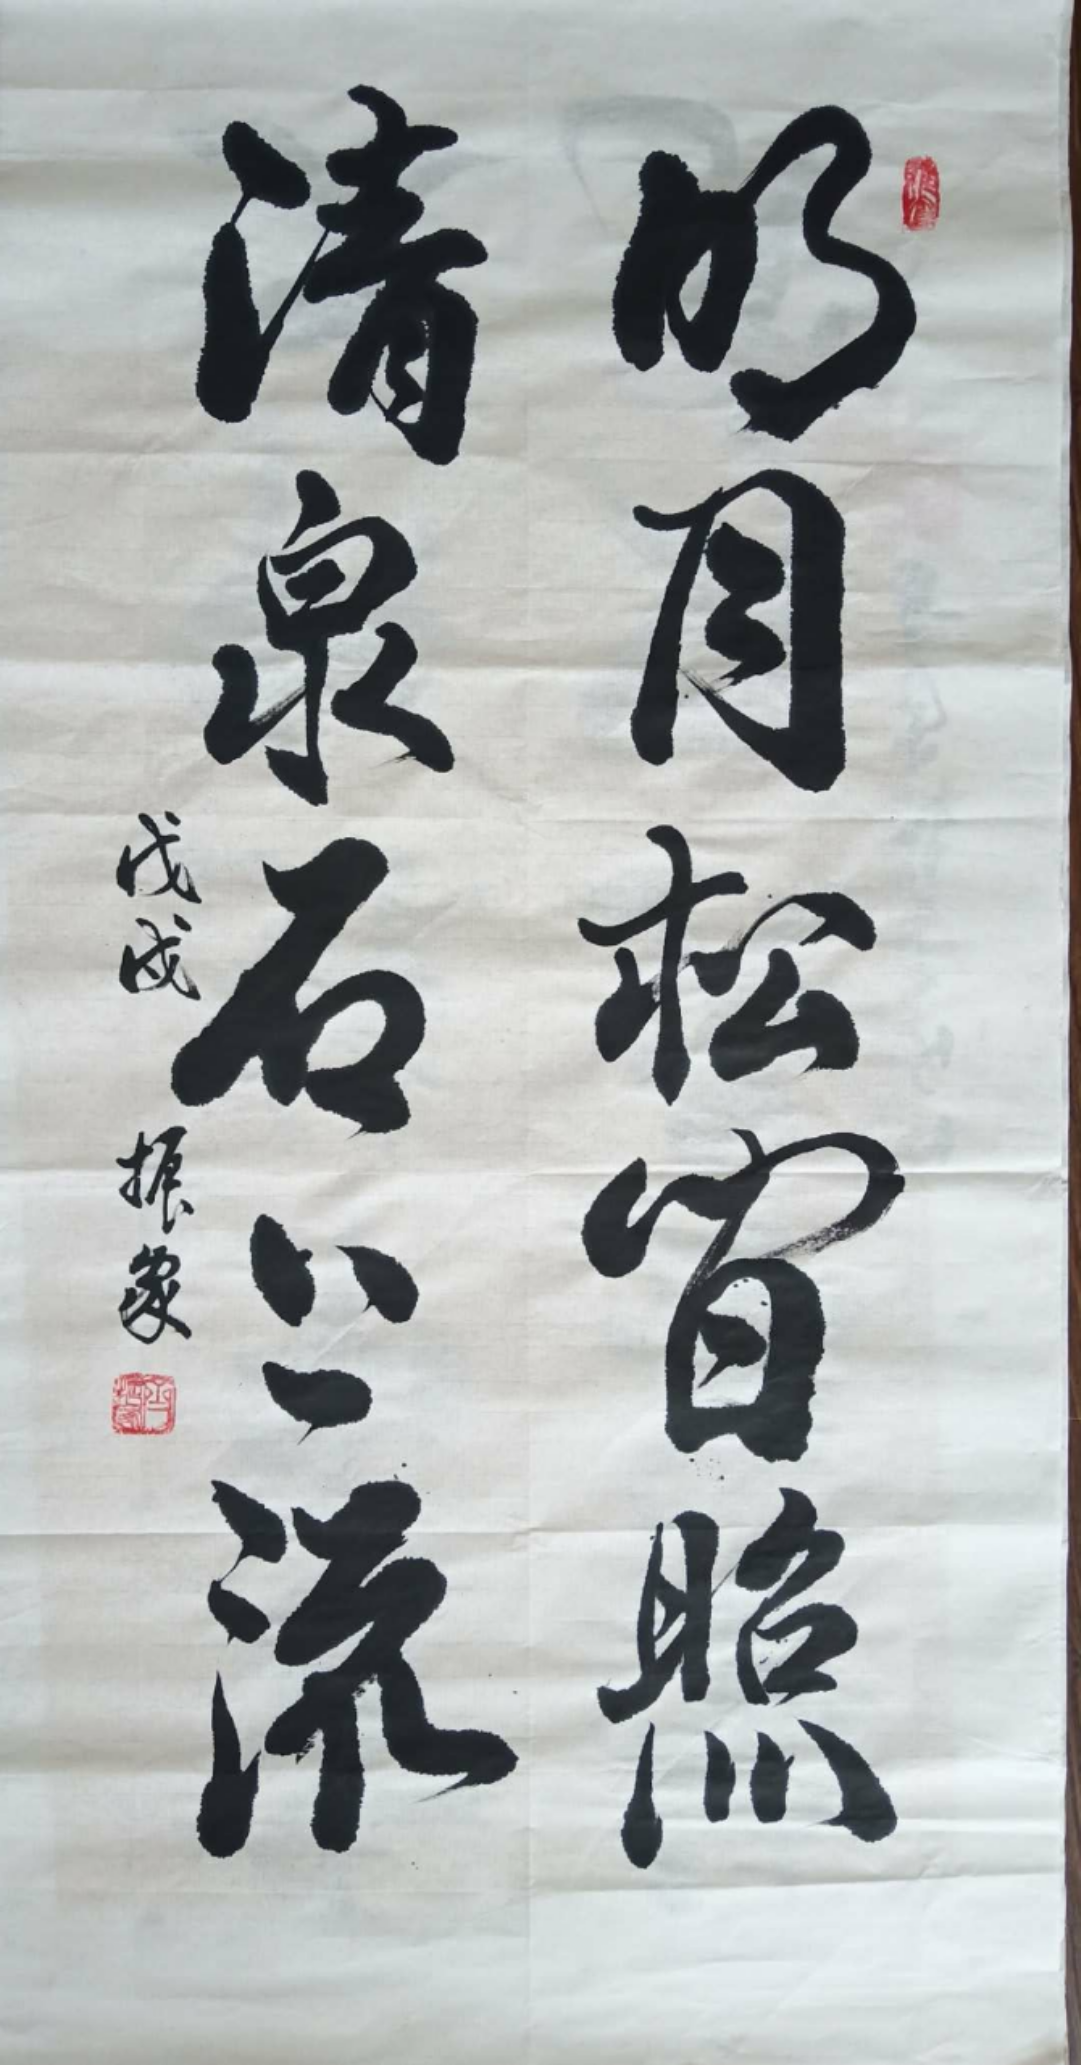 明月松间照
清泉石上流
戊戌 振家